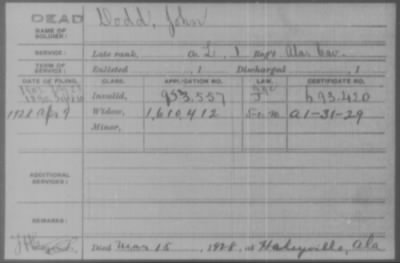 DEAD
NAME OF SOLDIER: Dodd, John
SERVICE: Late rank, Co. L, 1 Reg't Ala. Cav.
TERM OF SERVICE: Enlisted , 1 Discharged , 1
DATE OF FILING. CLASS. APPLICATION NO. LAW. CERTIFICATE NO.
Invalid, 953.557 693.420
1928 Apr 9 Widow, 1,610,412 A1-31-29
Minor,
ADDITIONAL SERVICES:
REMARKS:
Died Mar 15, 1928, at Haleyville, Ala